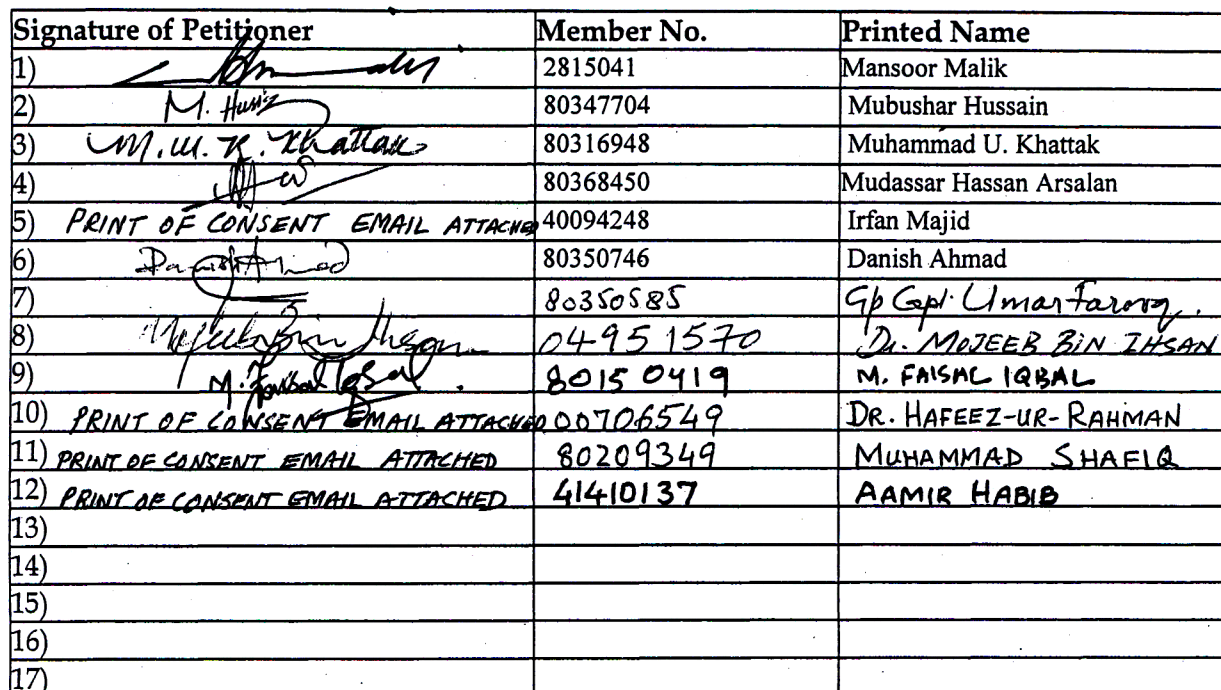 Signature of Petitioner Member No. Printed Name
1) 2815041 Mansoor Malik
2) M. 80347704 Mubushar Hussain
3) M. U. K. Khattak 80316948 Muhammad U. Khattak
4) 80368450 Mudassar Hassan Arsalan
5) PRINT OF CONSENT EMAIL ATTACHED 40094248 Irfan Majid
6) Danish Ahmad 80350746 Danish Ahmad
7) 80350585 Gp Capt. Umar Farooq.
8) Mojeeb Bin Ihsan 04951570 Dr. MOJEEB BIN IHSAN
9) M. Faisal Iqbal. 80150419 M. FAISAL IQBAL
10) PRINT OF CONSENT EMAIL ATTACHED 00706549 DR. HAFEEZ-UR-RAHMAN
11) PRINT OF CONSENT EMAIL ATTACHED 80209349 MUHAMMAD SHAFIQ
12) PRINT OF CONSENT EMAIL ATTACHED 41410137 AAMIR HABIB
13)
14)
15)
16)
17)